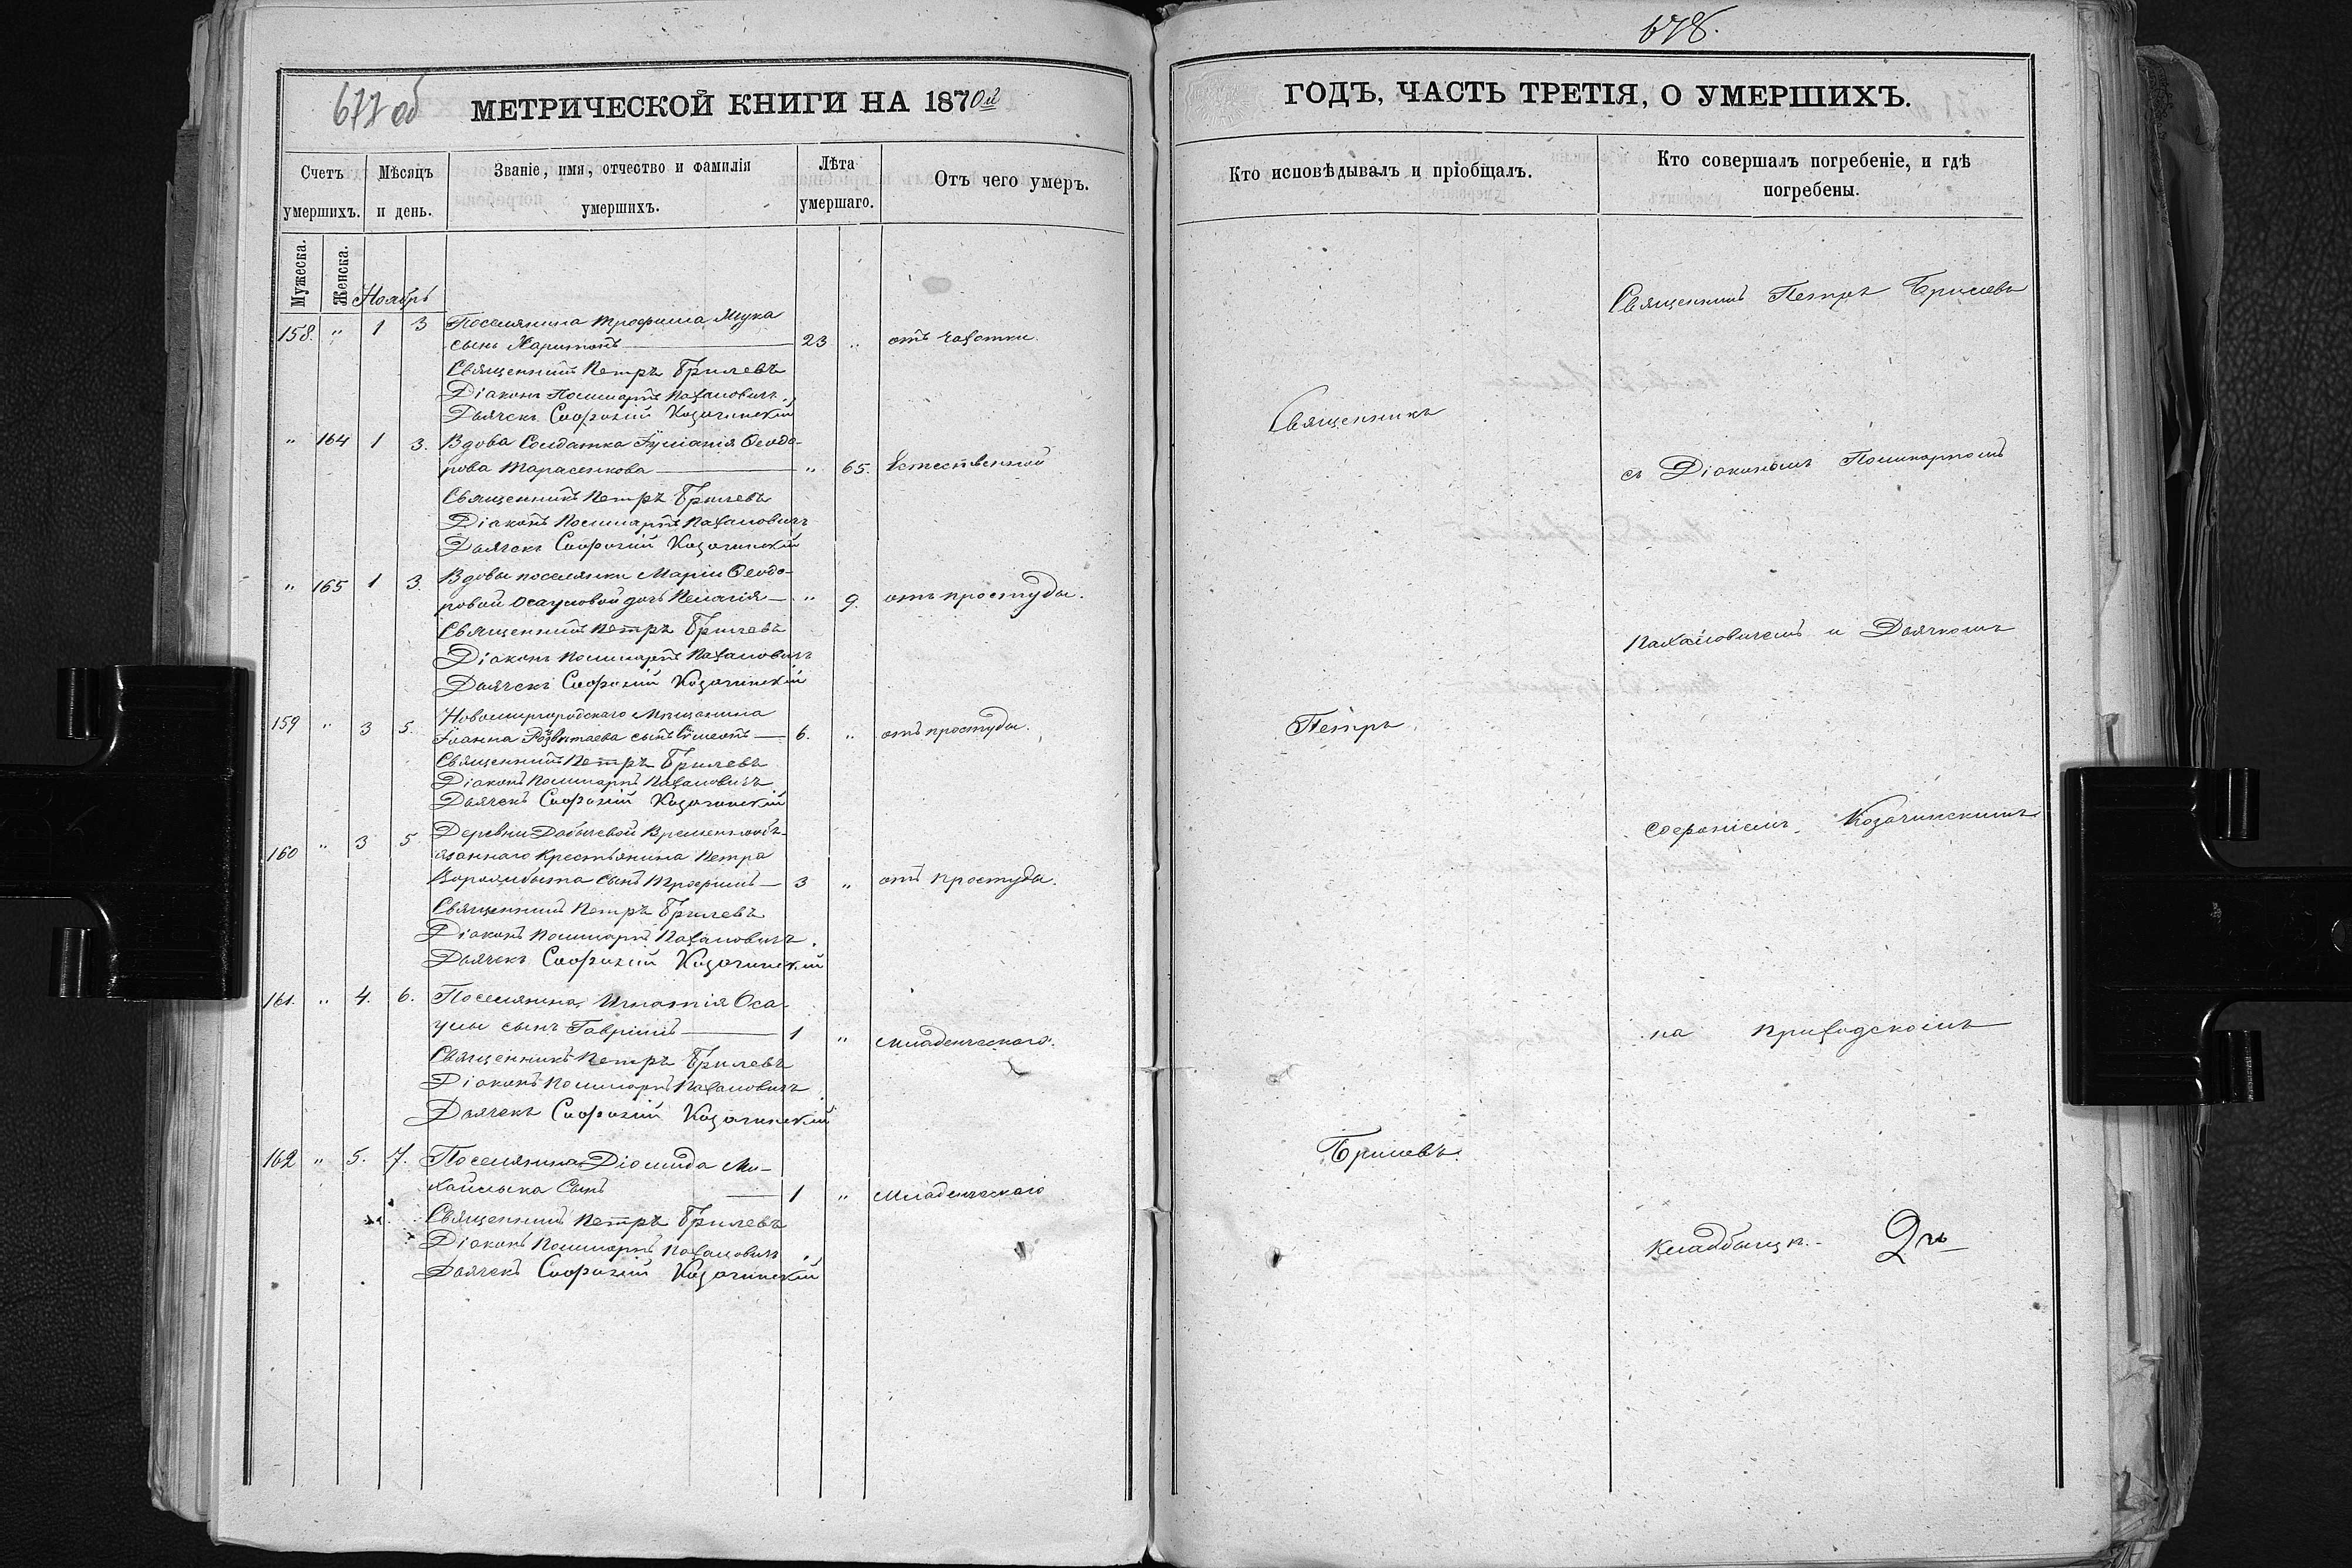 677 об
МЕТРИЧЕСКОЙ КНИГИ НА 1870й
Счетъ умершихъ.
Мѣсяцъ и день.
Званіе, имя, отчество и фамилія умершихъ.
Лѣта умершаго.
Отъ чего умеръ.
Мужеска.
Женска.
Ноябрь
158. " 1 3 Поселянина Трофима Мука
сынъ Харитонъ 23 " отъ чахотки.
Священникъ Петръ Брилевъ
Діаконъ Поликарпъ Пахаловичъ
Дьячекъ Софроній Козачинскій
" 164 1 3. Вдова Солдатка Ѳеодо-
рова Тарасенкова " 65. Естественной
Священникъ Петръ Брилевъ
Діаконъ Поликарпъ Пахаловичъ
Дьячекъ Софроній Козачинскій
" 165 1 3. Вдовы поселянки Маріи Ѳеодо-
ровой Осауловой дочь Пелагія " 9. отъ простуды.
Священникъ Петръ Брилевъ
Діаконъ Поликарпъ Пахаловичъ
Дьячекъ Софроній Козачинскій
159 " 3 5. Новомиргородскаго Мѣщанина
Іоанна сынъ Симеонъ 6. " отъ простуды.
Священникъ Петръ Брилевъ
Діаконъ Поликарпъ Пахаловичъ
Дьячекъ Софроній Козачинскій
160 " 3 5 Деревни Временнообя-
заннаго Крестьянина Петра
сынъ Трофимъ 3 " отъ простуды.
Священникъ Петръ Брилевъ
Діаконъ Поликарпъ Пахаловичъ.
Дьячекъ Софроній Козачинскій
161. " 4. 6. Поселянина Игнатія Оса-
улы сынъ Гавріилъ 1 " Младенческаго.
Священникъ Петръ Брилевъ
Діаконъ Поликарпъ Пахаловичъ
Дьячекъ Софроній Козачинскій
162 " 5. 7. Поселянина Діомида Ми-
хайлыка Сынъ 1 " Младенческаго
Священникъ Петръ Брилевъ
Діаконъ Поликарпъ Пахаловичъ
Дьячекъ Софроній Козачинскій
678.
ГОДЪ, ЧАСТЬ ТРЕТІЯ, О УМЕРШИХЪ.
Кто исповѣдывалъ и пріобщалъ.
Кто совершалъ погребеніе, и гдѣ
погребены.
Священникъ
Петръ
Брилевъ.
Священникъ Петръ Брилевъ
съ Діакономъ Поликарпомъ
Пахаловичемъ и Дьячкомъ
Софроніемъ Козачинскимъ
на приходскомъ
кладбищѣ.